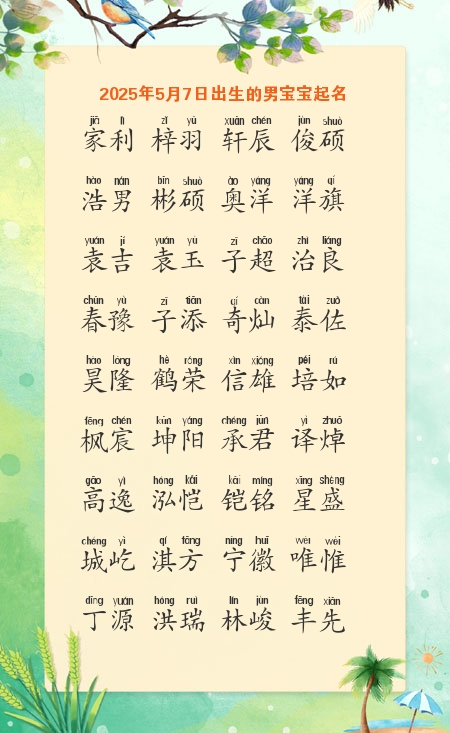 2025年5月7日出生的男宝宝起名
jiā lì zǐ yǔ xuān chén jùn shuò
家利 梓羽 轩辰 俊硕
hào nán bīn shuò ào yáng yáng qí
浩男 彬硕 奥洋 洋旗
yuán jí yuán yù zǐ chāo zhì liáng
袁吉 袁玉 子超 治良
chūn yù zǐ tiān qí càn tài zuǒ
春豫 子添 奇灿 泰佐
hào lóng hè róng xìn xióng péi rú
昊隆 鹤荣 信雄 培如
fēng chén kūn yáng chéng jūn yì zhuō
枫宸 坤阳 承君 译焯
gāo yì hóng kǎi kǎi míng xīng shèng
高逸 泓恺 铠铭 星盛
chéng yì qí fāng níng huī wéi wéi
城屹 淇方 宁徽 唯惟
dīng yuán hóng ruì lín jùn fēng xiān
丁源 洪瑞 林峻 丰先